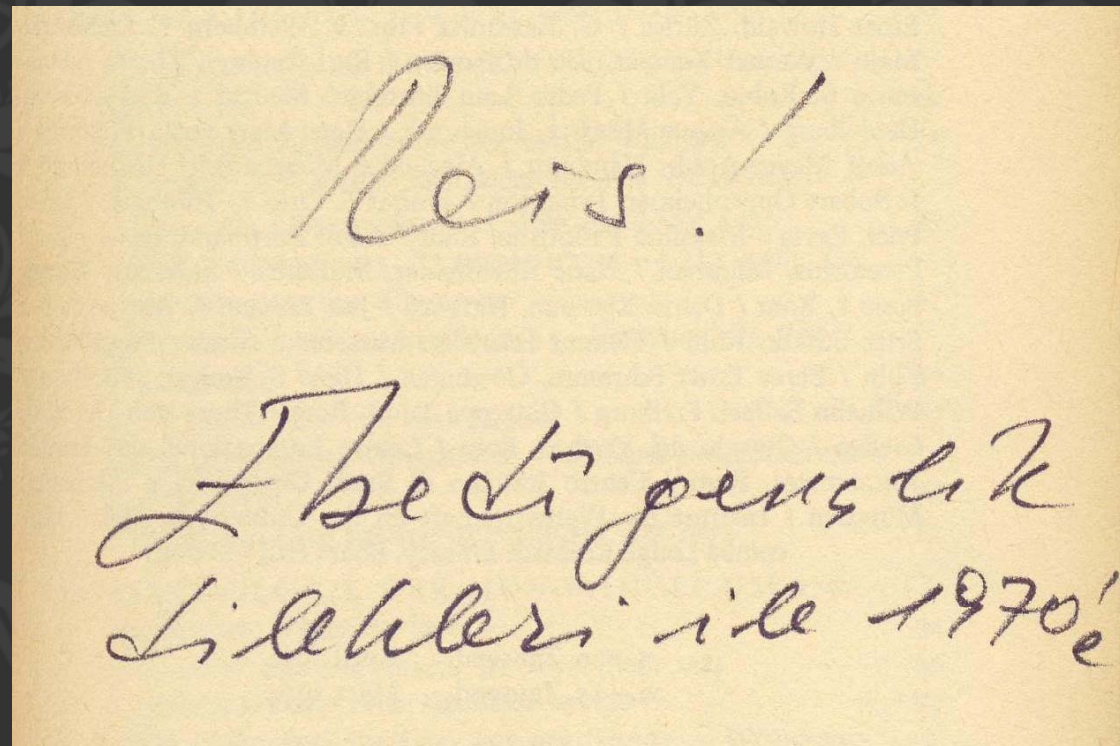 Reis!
Ebedî gençlik
dilekleri ile 1970'e